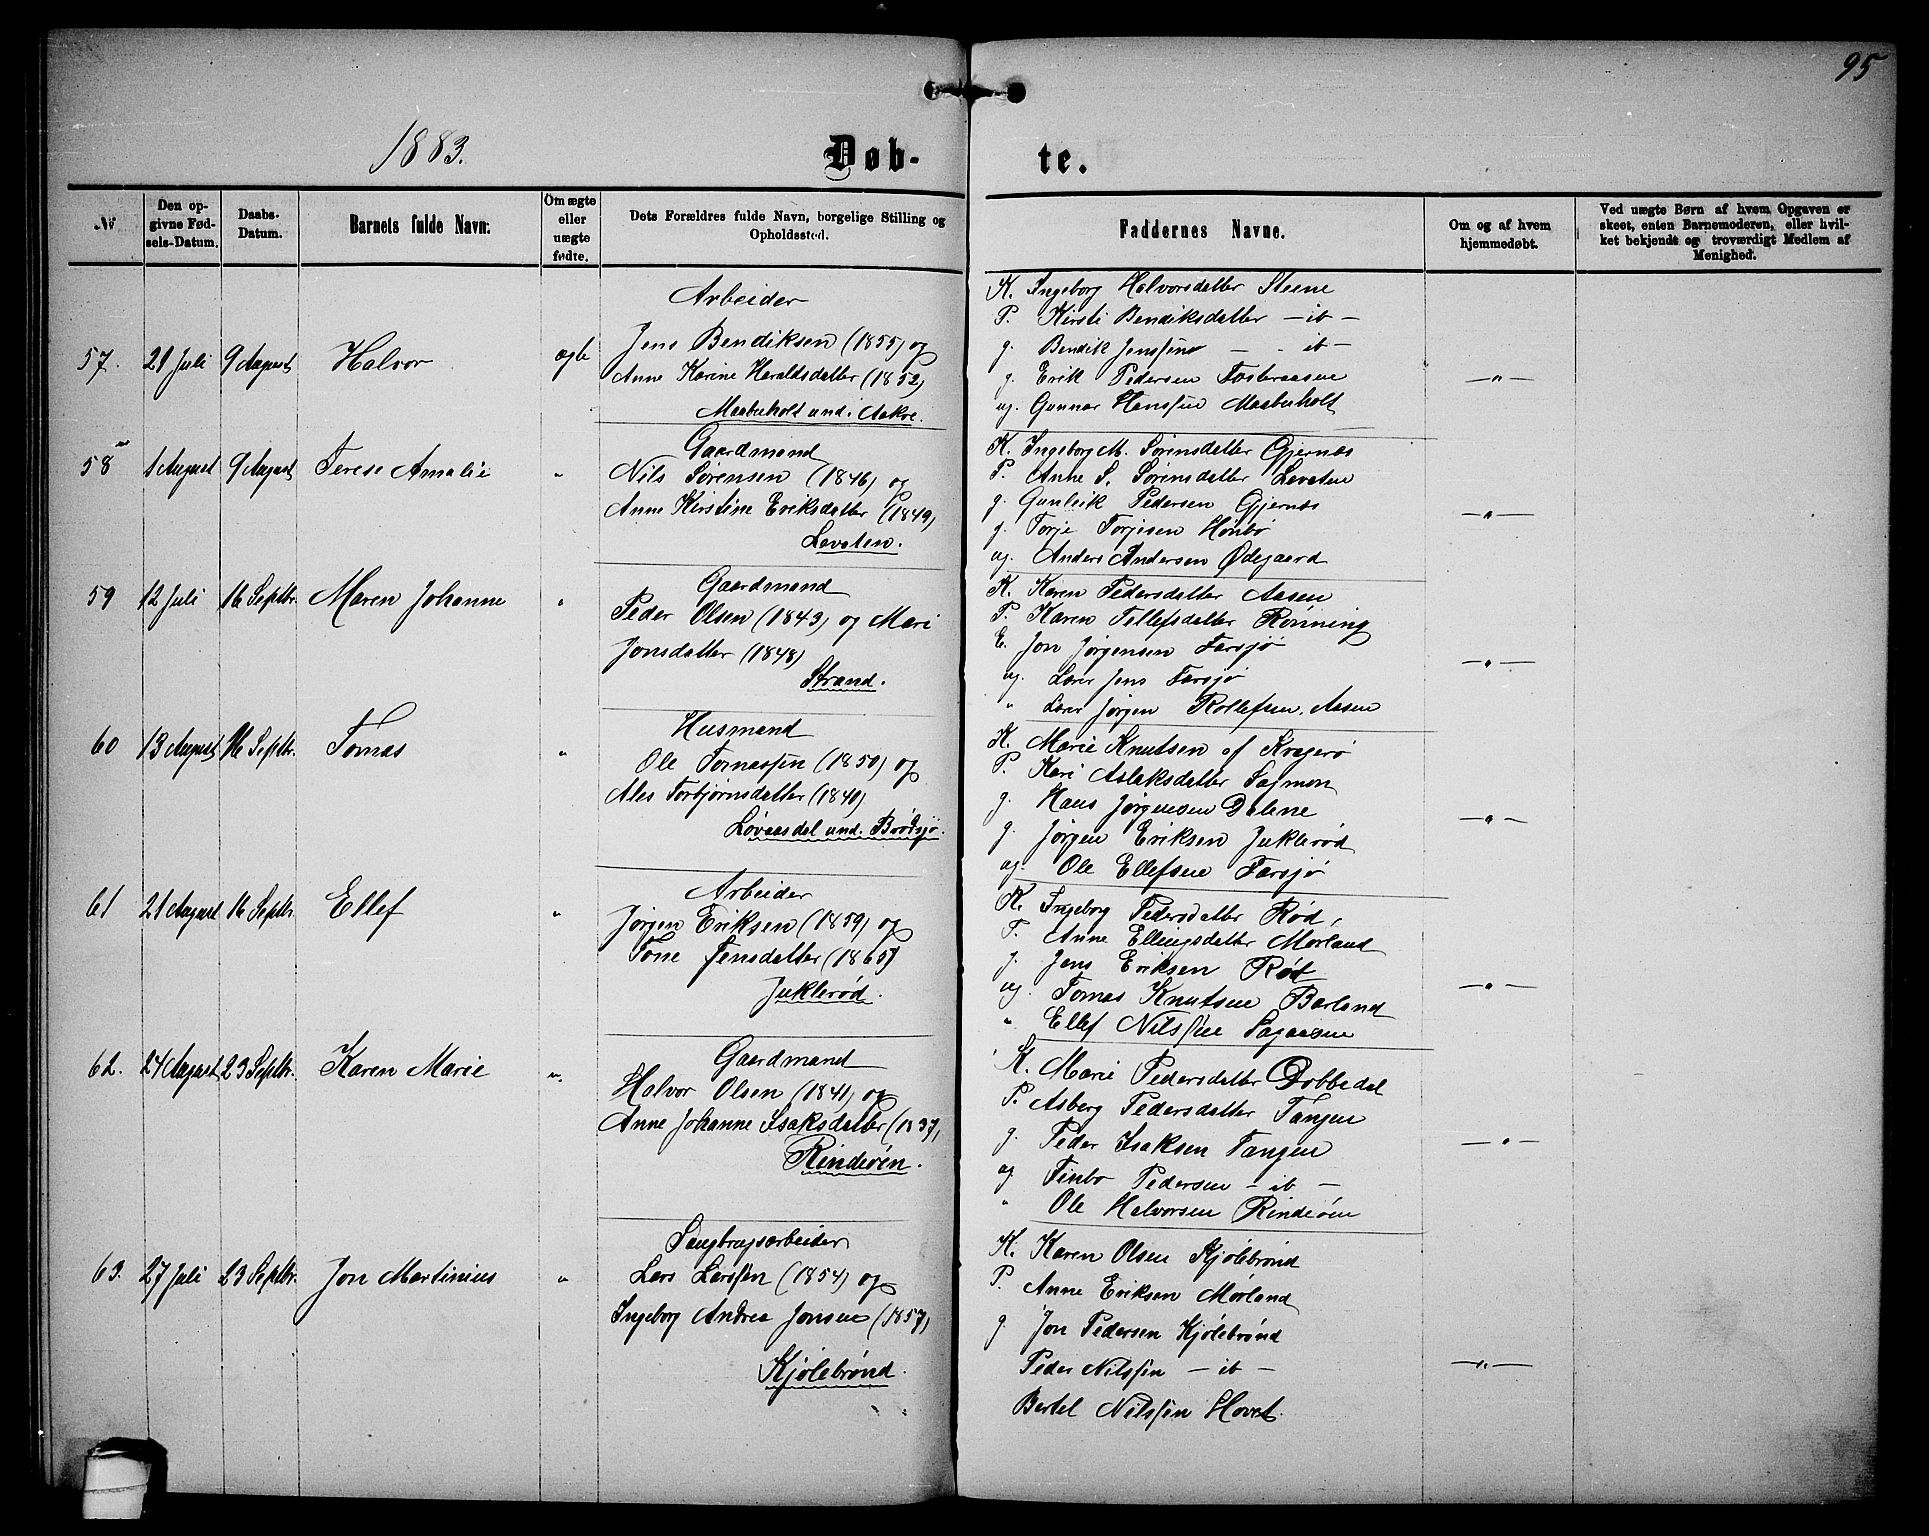 95
1883.
Døb-
te.
№
Den opgivne Fødsels-Datum.
Daabs-Datum.
Barnets fulde Navn.
Om ægte eller uægte fødte.
Dets Forældres fulde Navn, borgelige Stilling og Opholdssted.
Faddernes Navne.
Om og af hvem hjemmedøbt.
Ved uægte Børn af hvem Opgaven er skeet, enten Barnemoderen, eller hvilket bekjendt og troværdigt Medlem af Menighed.
57. 21 Juli 9 August Halvor ægte
Arbeider
Jens Bendiksen (1855) og
Anne Karine Haraldsdatter (1852)
Maaberholt und. Aakre.
K. Ingeborg Halvorsdatter Steene
P. Kirsti Bendiksdatter — it —
g. Bendik Jenssen — it —
g. Erik Pedersen Fosteraasen
ug. Gunnar Hanssen Maaberholt
— " —
58 1 August 9 August Terese Amalie "
Gaardmand
Nils Sørensen (1846) og
Anne Kirstine Eriksdatter (1849)
Levaten.
K. Ingeborg M. Sørensdatter Gjernæs
P. Anne S. Sørensdatter Levaten
g. Gunleik Pedersen Gjernæs
g. Torje Torjesen Hønbø
ug. Anders Andersen Ødegaard
— " —
59 12 Juli 16 Septbr. Maren Johanne "
Gaardmand
Peder Olsen (1843) og Mari
Jonsdatter (1848)
Strand.
K. Karen Pedersdatter Aasen
P. Karen Tellefsdatter Rønning
E. Jon Jørgensen Farsjø
ug. Lærer Jens Farsjø
" Lærer Jørgen Rollefsen Aasen
— " —
60 13 August 16 Septbr. Tomas "
Husmand
Ole Tomassen (1850) og
Ales Torbjørnsdatter (1840)
Løvaasdal und. Brødsjø.
K. Marie Knutsen af Kragerø
P. Kari Aslaksdatter Sagmon
g. Hans Jørgensen Dalene
g. Jørgen Eriksen Juklerød
ug. Ole Ellefsen Farsjø
— " —
61 21 August 16 Septbr. Ellef "
Arbeider
Jørgen Eriksen (1859) og
Tone Jensdatter (1865)
Juklerød.
K. Ingeborg Pedersdatter Rød,
P. Anne Ellingsdatter Mørland
g. Jens Eriksen Rød
ug. Tomas Knutsen Barland
" Ellef Nilssen Sagaasen
— " —
62. 24 August 23 Septbr. Karen Marie "
Gaardmand
Halvor Olsen (1841) og
Anne Johanne Isaksdatter (1837)
Rinderøen.
K. Marie Pedersdatter Dobbedal
P. Asberg Pedersdatter Tangen
g. Peder Isaksen Tangen
ug Finbo Pedersen — it —
" Ole Halvorsen Rinderøen
— " —
63. 27 Juli 23 Septbr. Jon Martinius "
Saugbrugsarbeider
Lars Larssen (1854) og
Ingeborg Andrea Jonsen (1857)
Kjølebrønd.
K. Karen Olsen Kjølebrønd
P. Anne Eriksen Mørland
g. Jon Pedersen Kjølebrønd
Peder Nilssen — it —
Bertel Nilssen Hovet.
— " —